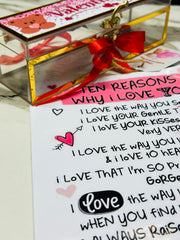 TEN REASONS
WHY I LOVE YO
I LOVE THE WAY YOU S
I LOVE YOUR GENTLE T
I LOVE YOUR KISSES
VERY VER
I LOVE THE WAY YOU
& I LOVE TO HEAR
I LOVE THAT I'M SO PR
GORGE
I love THE WAY
WHEN YOU FIND
ALWAYS RAISE